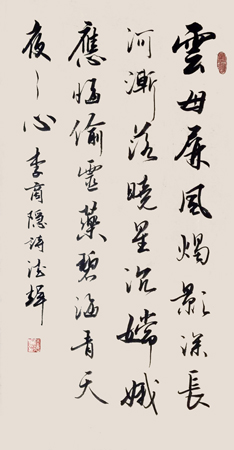 雲母屏風燭影深長
河漸落曉星沉嫦娥
應悔偷靈藥碧海青天
夜〻心 李商隱詩